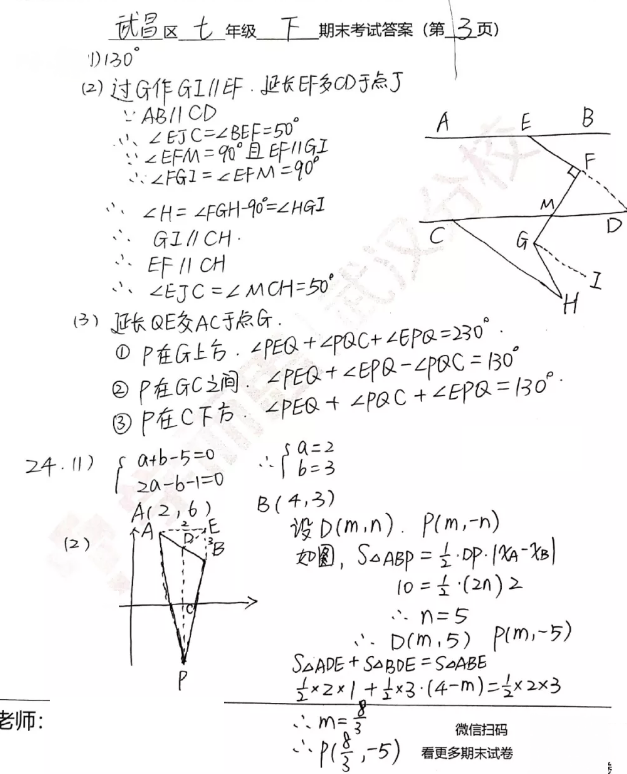 武昌区 七 年级 下 期末考试答案（第 3 页）
1)130°
(2) 过G作GI//EF．延长EF多CD于点J
∵ AB//CD
∴ ∠EJC=∠BEF=50°
∵ ∠EFM=90°且EF//GI
∴ ∠FGI=∠EFM=90°
∵ ∠H=∠FGH-90°=∠HGI
∴ GI//CH．
∴ EF//CH
∴ ∠EJC=∠MCH=50°
A E B
F
M D
C G
I
H
(3) 延长QE交AC于点G．
① P在G上方．∠PEQ+∠PQC+∠EPQ=230°．
② P在GC之间．∠PEQ+∠EPQ-∠PQC=130°
③ P在C下方．∠PEQ+∠PQC+∠EPQ=130°．
24.(1) { a+b-5=0
2a-b-1=0
∴ { a=2
b=3
A(2,6) B(4,3)
(2)
A 2 E
D 3
B
C
P
设D(m,n)．P(m,-n)
如图，S△ABP=½·DP·|xA-xB|
10=½·(2n)2
∴ n=5
∴ D(m,5) P(m,-5)
S△ADE+S△BDE=S△ABE
½×2×1+½×3·(4-m)=½×2×3
∴ m=8/3
∴ P(8/3,-5)
老师：
微信扫码
看更多期末试卷